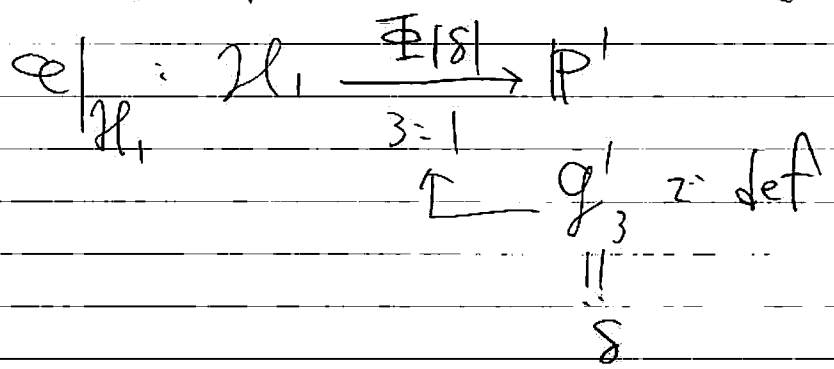 φ|_{H_1} : H_1 \xrightarrow[3:1]{Φ_{|δ|}} ℙ^1
↑ g^1_3 で def
||
δ